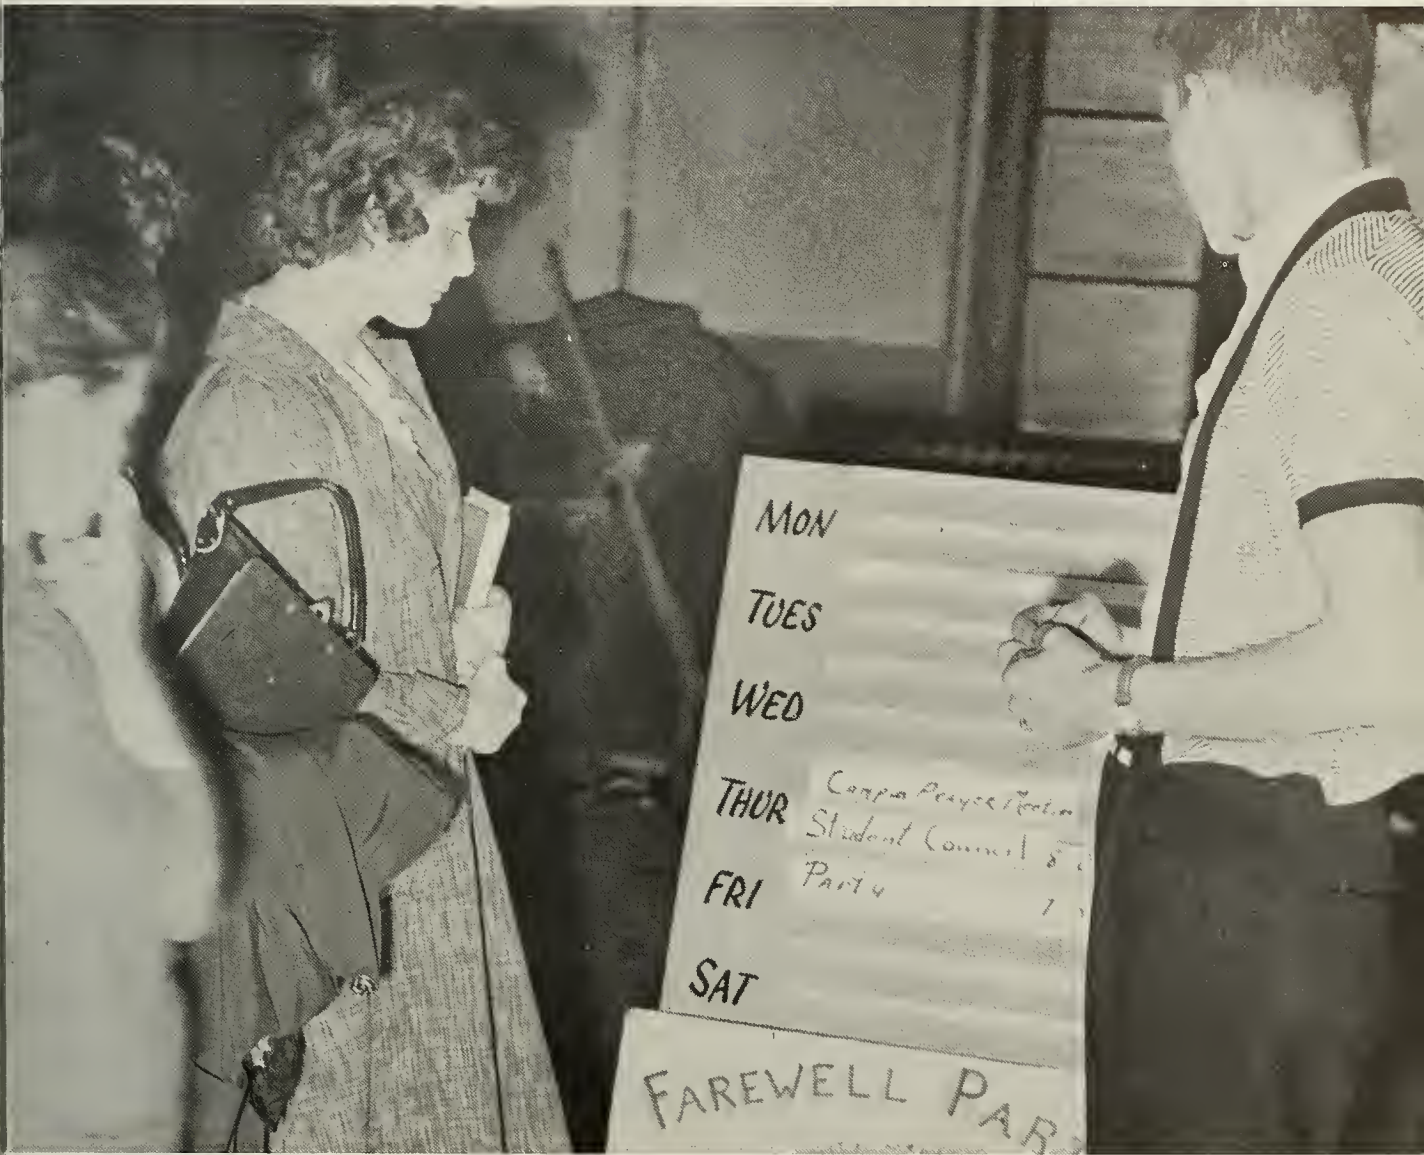 MON
TUES
WED
THUR Campus Prayer Meetin
Student Council 8
FRI Party 7
SAT
FAREWELL PAR